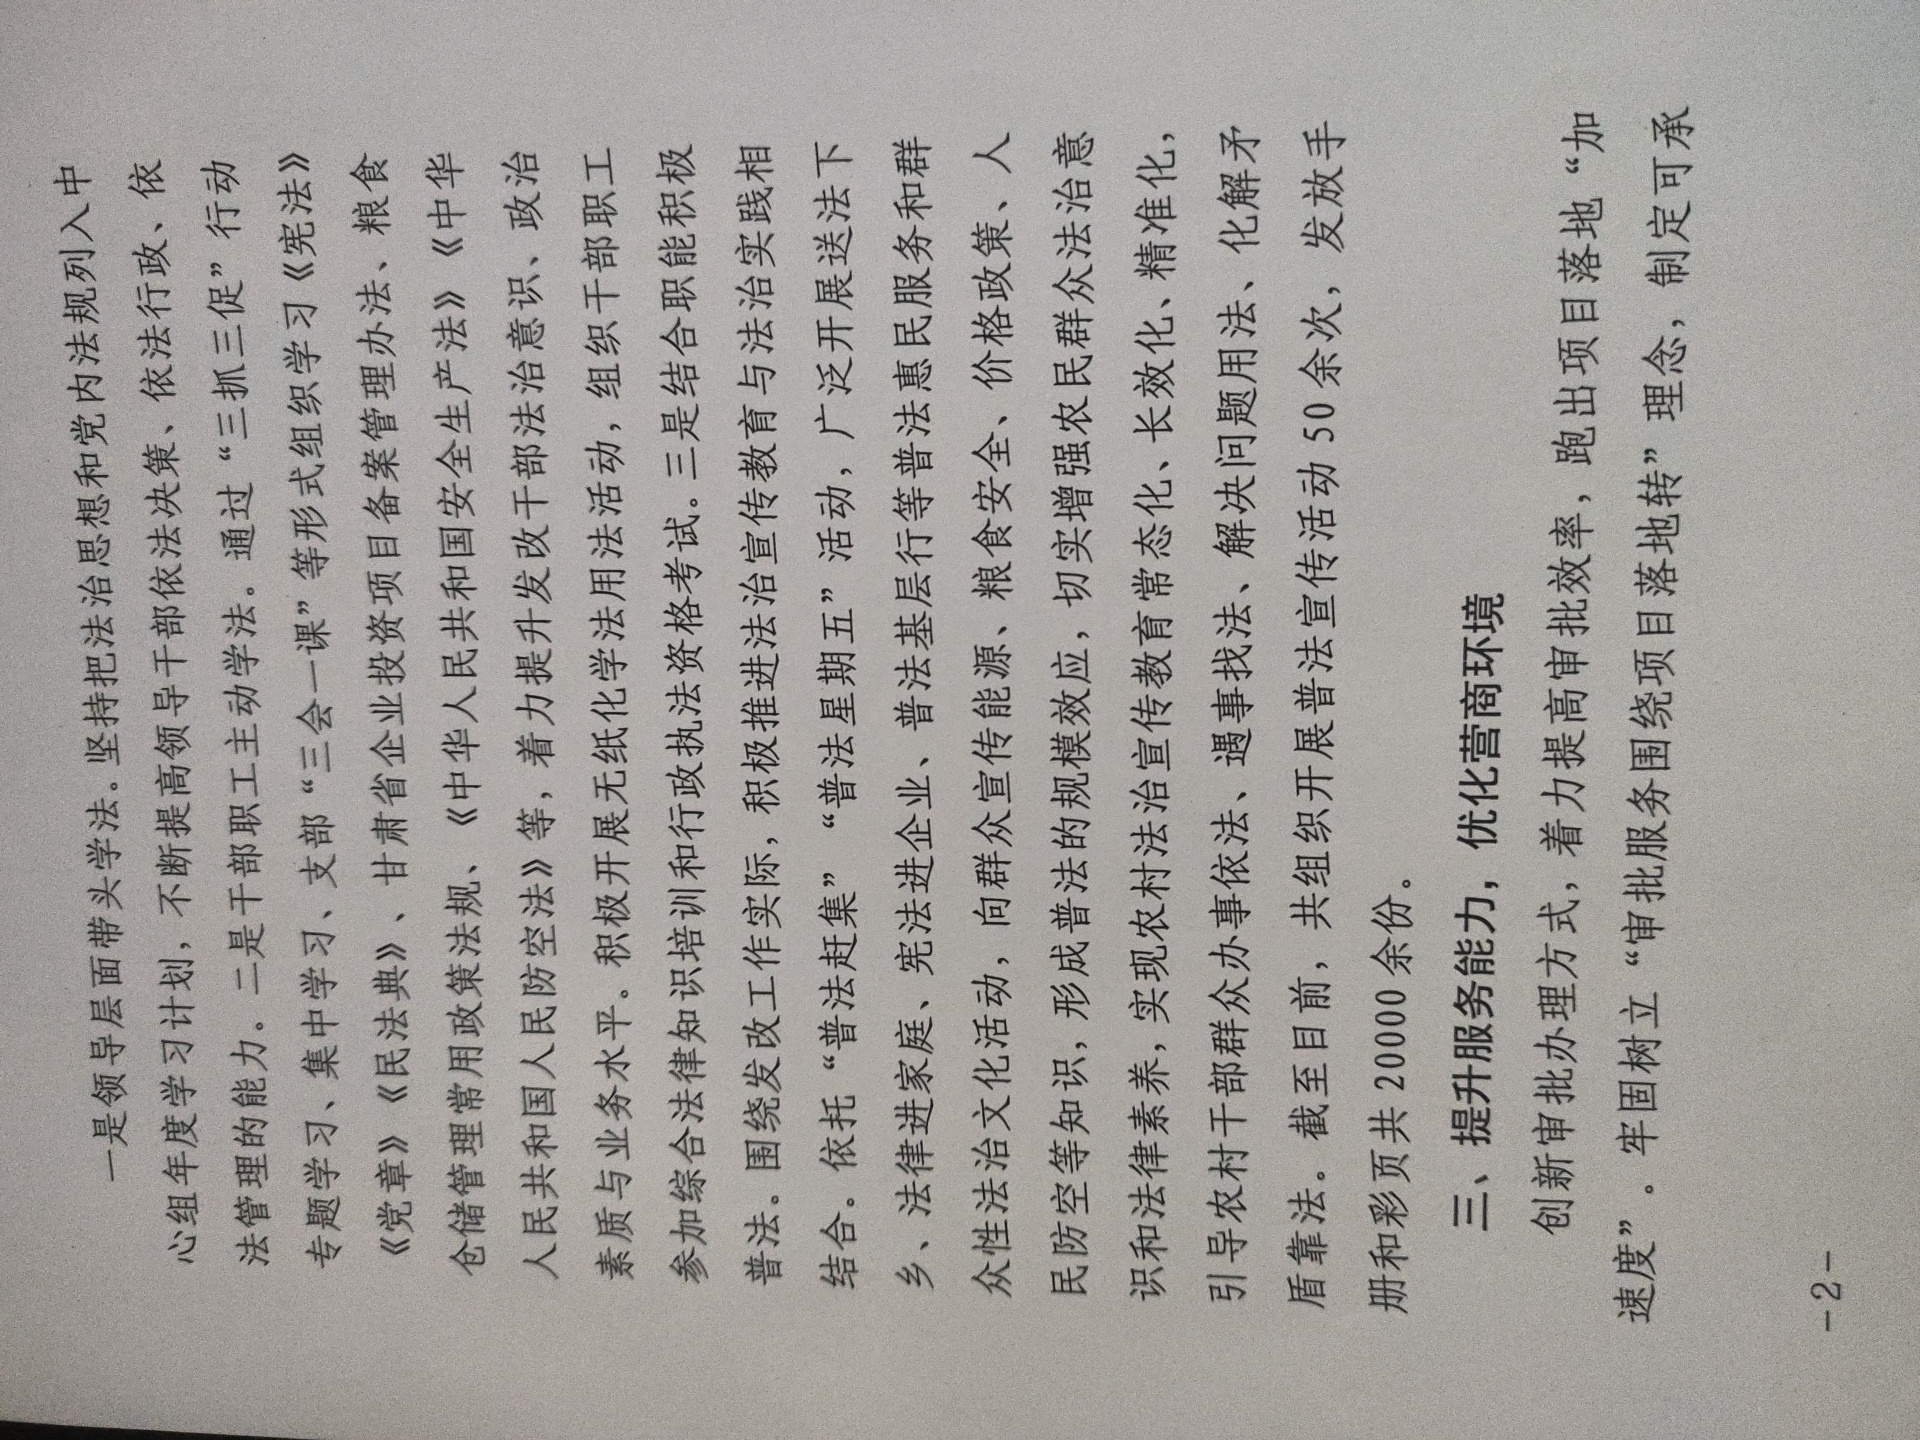 一是领导层面带头学法。坚持把法治思想和党内法规列入中
心组年度学习计划，不断提高领导干部依法决策、依法行政、依
法管理的能力。二是干部职工主动学法。通过“三抓三促”行动
专题学习、集中学习、支部“三会一课”等形式组织学习《宪法》
《党章》《民法典》、甘肃省企业投资项目备案管理办法、粮食
仓储管理常用政策法规、《中华人民共和国安全生产法》《中华
人民共和国人民防空法》等，着力提升发改干部法治意识、政治
素质与业务水平。积极开展无纸化学法用法活动，组织干部职工
参加综合法律知识培训和行政执法资格考试。三是结合职能积极
普法。围绕发改工作实际，积极推进法治宣传教育与法治实践相
结合。依托“普法赶集”“普法星期五”活动，广泛开展送法下
乡、法律进家庭、宪法进企业、普法基层行等普法惠民服务和群
众性法治文化活动，向群众宣传能源、粮食安全、价格政策、人
民防空等知识，形成普法的规模效应，切实增强农民群众法治意
识和法律素养，实现农村法治宣传教育常态化、长效化、精准化，
引导农村干部群众办事依法、遇事找法、解决问题用法、化解矛
盾靠法。截至目前，共组织开展普法宣传活动50余次，发放手
册和彩页共20000余份。
三、提升服务能力，优化营商环境
创新审批办理方式，着力提高审批效率，跑出项目落地“加
速度”。牢固树立“审批服务围绕项目落地转”理念，制定可承
－2－